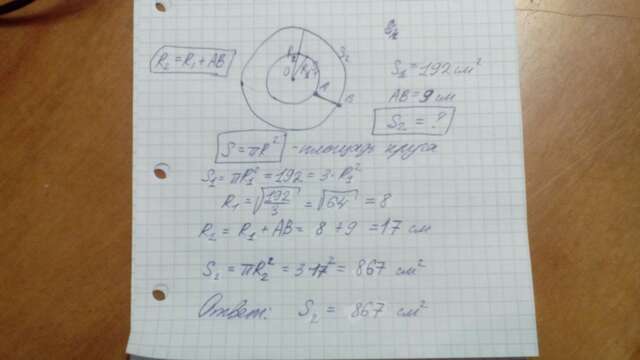 R₂ = R₁ + AB
R₂ S₂
O R₁ S₁
A
B
S₁ = 192 см²
AB = 9 см
S₂ = ?
S = πR² - площадь круга
S₁ = πR₁² = 192 = 3 · R₁²
R₁ = √(192/3) = √64 = 8
R₂ = R₁ + AB = 8 + 9 = 17 см
S₂ = πR₂² = 3·17² = 867 см²
Ответ: S₂ = 867 см²